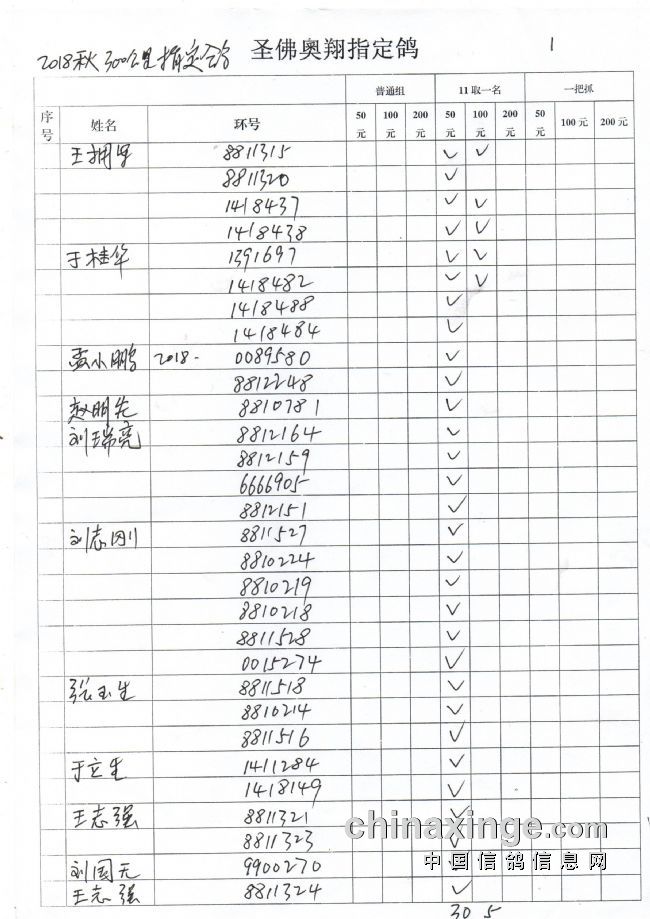 2018秋300公里指定鸽 圣佛奥翔指定鸽 1
普通组 11取一名 一把抓
序号 姓名 环号 50元 100元 200元 50元 100元 200元 50元 100元 200元
王拥军 8811315 ✓ ✓
8811320 ✓
1418437 ✓ ✓
1418438 ✓ ✓
于桂华 1391697 ✓ ✓
1418482 ✓ ✓
1418488 ✓
1418484 ✓
孟小鹏 2018- 0089580 ✓
8812248 ✓
赵明先 8810781 ✓
刘瑞亮 8812164 ✓
8812159 ✓
6666905 ✓
8812151 ✓
刘志刚 8811527 ✓
8810224 ✓
8810219 ✓
8810218 ✓
8811528 ✓
0015274 ✓
张玉生 8811518 ✓
8810214 ✓
8811516 ✓
于立生 1411284 ✓
1418149 ✓
王志强 8811321 ✓
8811323 ✓
刘国天 9900270 ✓
王志强 8811324 ✓
30 5
chinaxinge.com
中国信鸽信息网